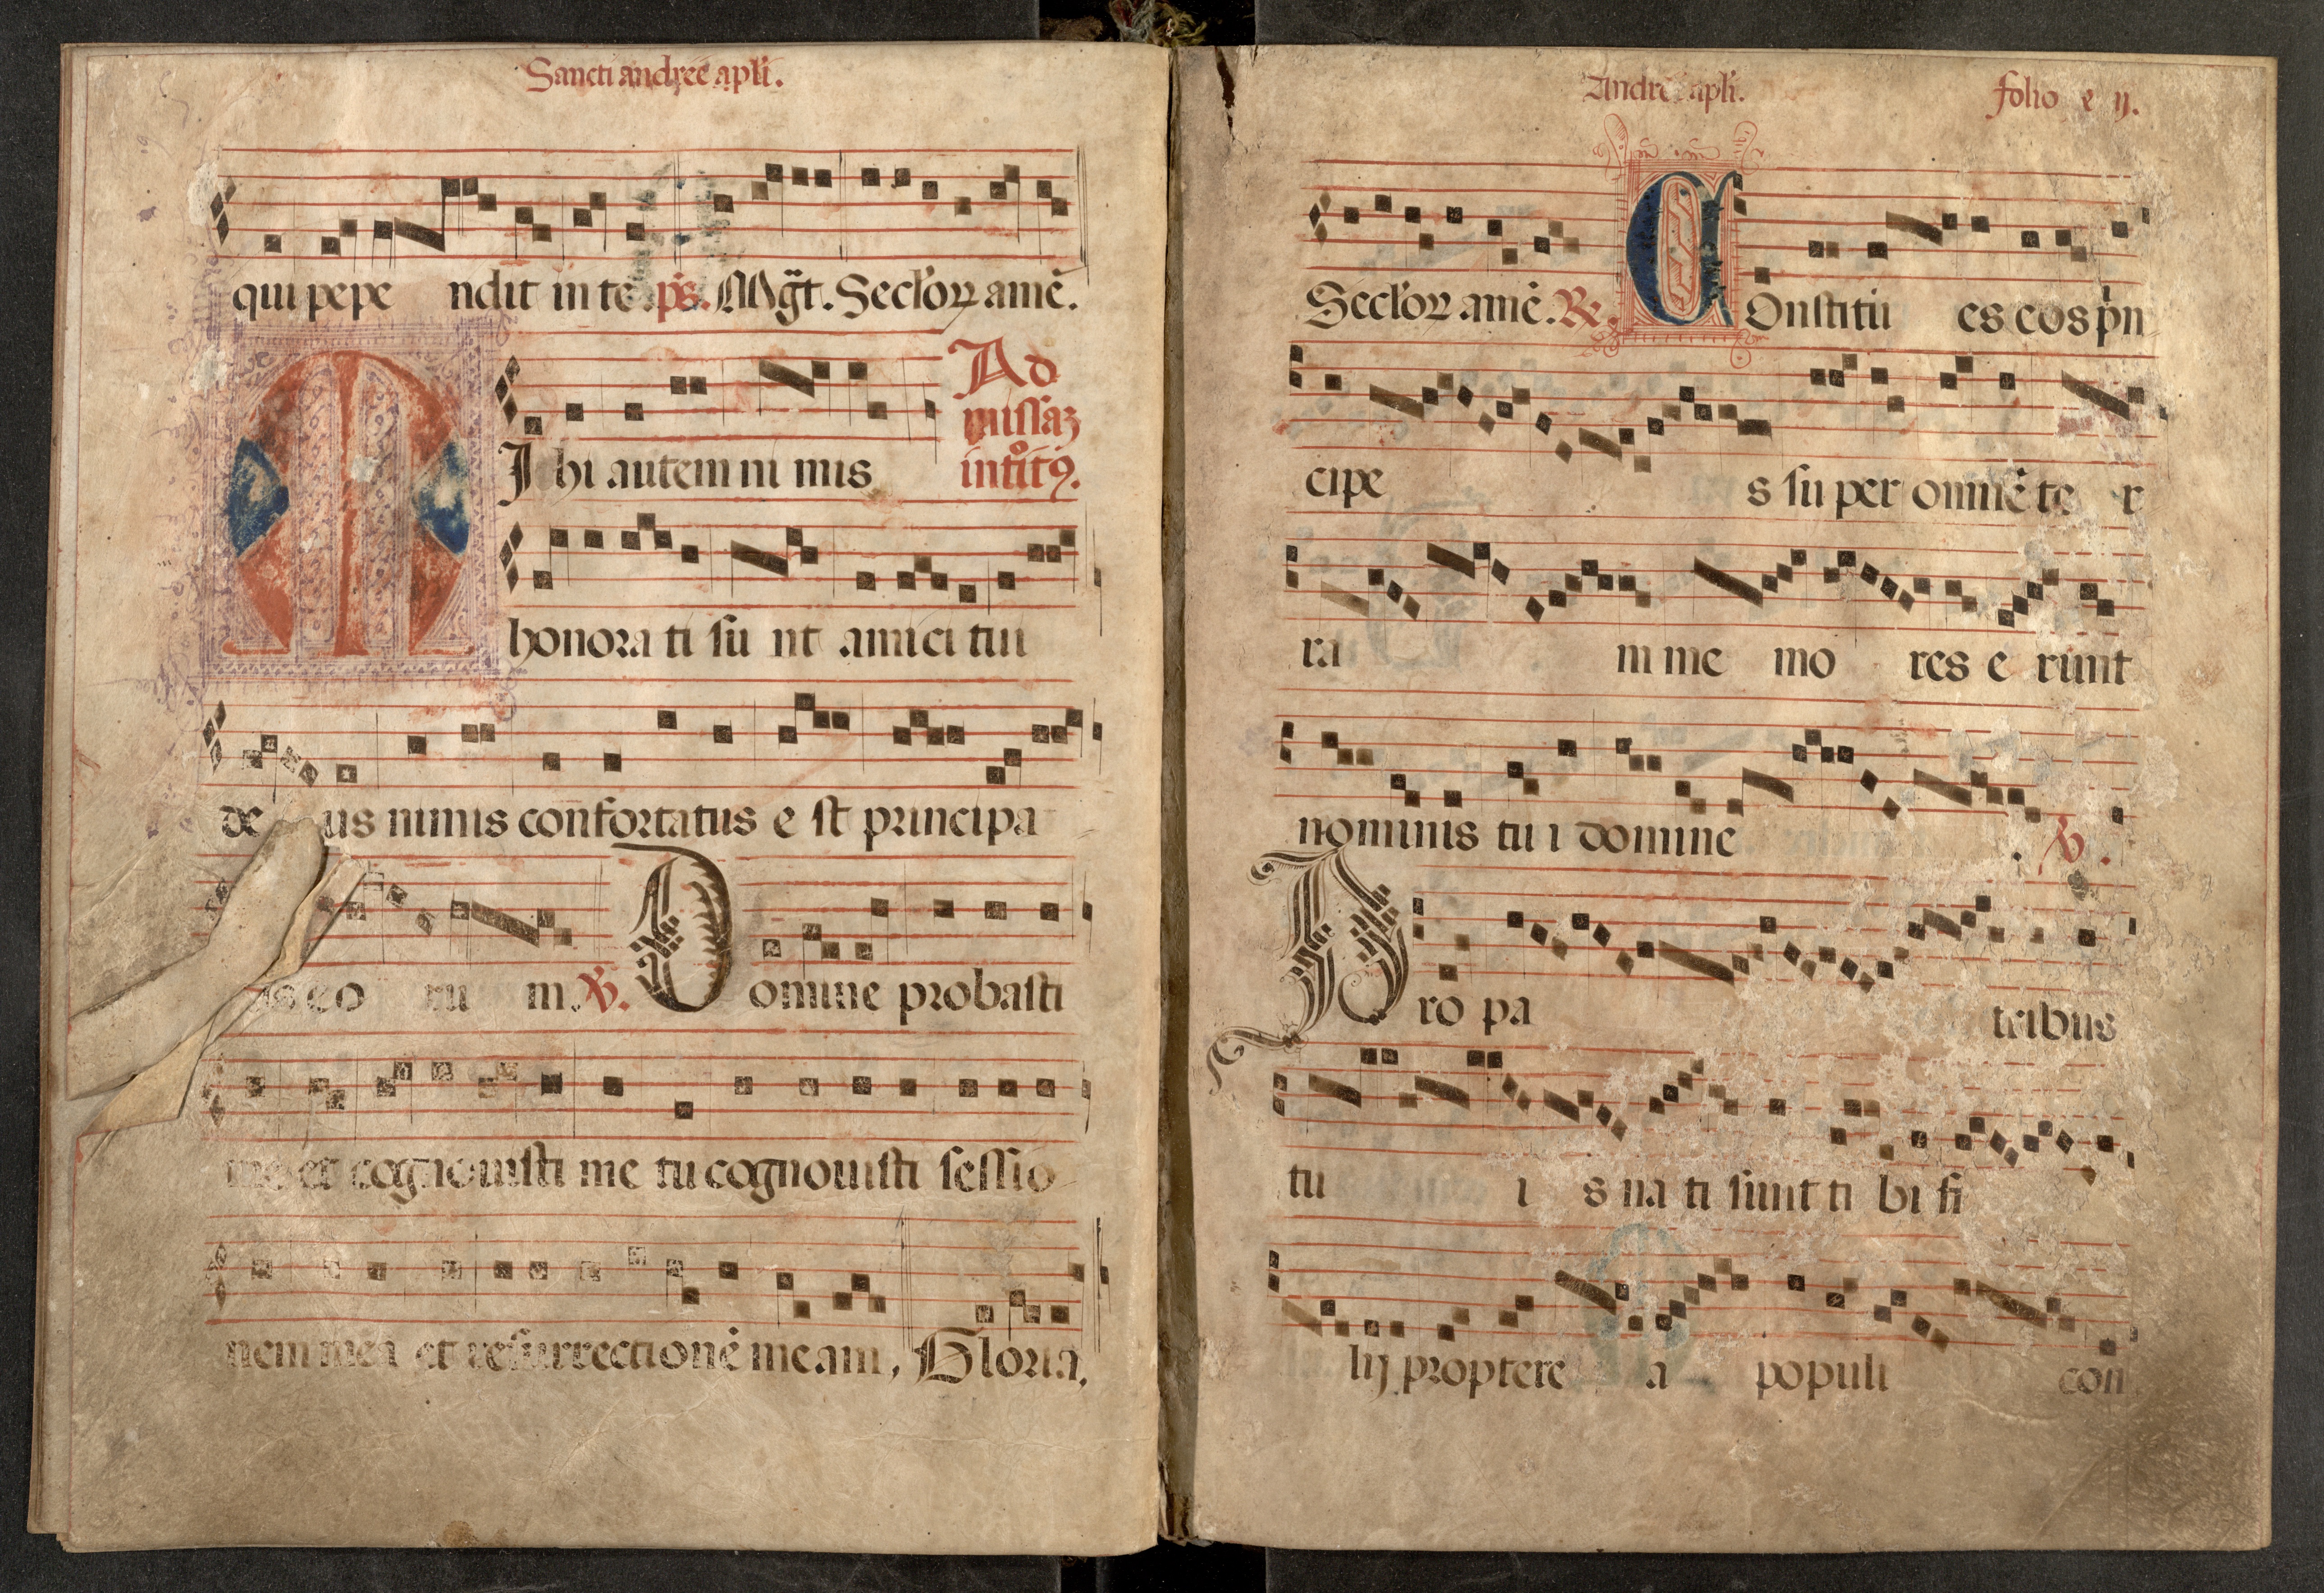 Sancti andree apli.
qui pepe ndit in te. ps. Mgt. Seclor amē.
Ad
missaz
introit9.
MIhi autem ni mis
honora ti su nt amici tui
de us nimis confortatus e st principa
us eo ru m. V.
Domine probasti
me et cognouisti me tu cognouisti sessio
nem mea et resurrectionē meam, Gloria.
Andree apli. folio e ij.
Seclor amē. R. COnstitu es eos prin
cipe s su per omnē te r
ra m me mo res e runt
nominis tu i domine V.
Pro pa tribus
tu i s na ti sunt ti bi fi
lij proptere a populi con